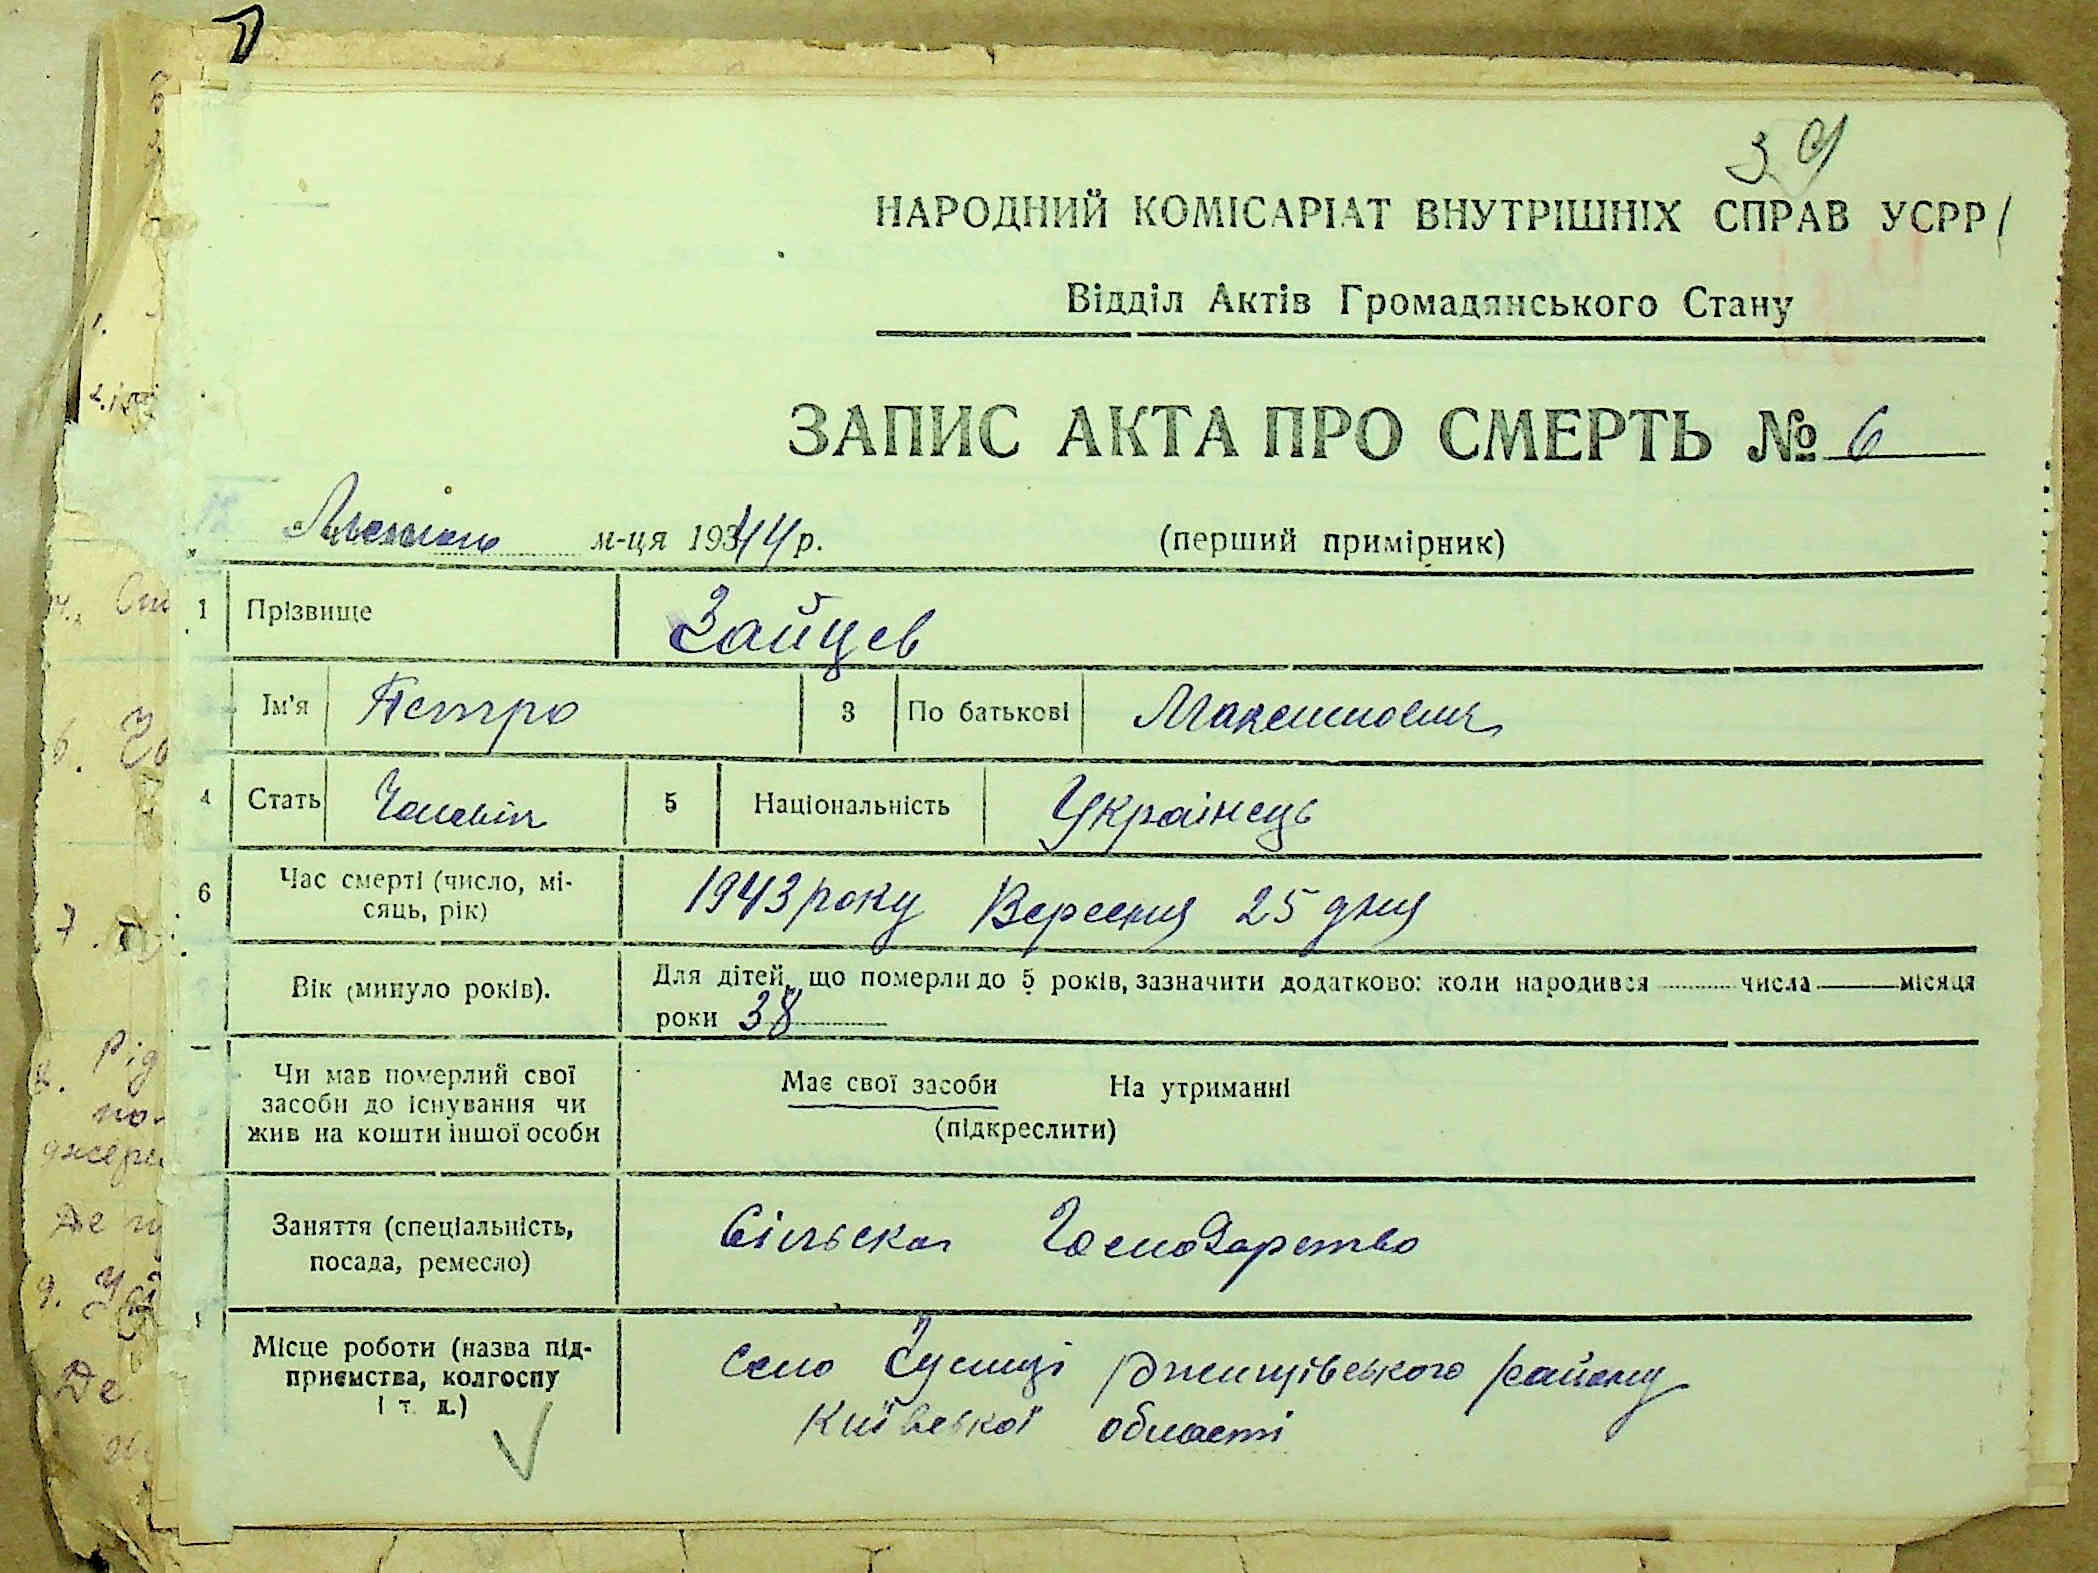 39
НАРОДНИЙ КОМІСАРІАТ ВНУТРІШНІХ СПРАВ УСРР
Відділ Актів Громадянського Стану
ЗАПИС АКТА ПРО СМЕРТЬ № 6
м-ця 19344 р. (перший примірник)
1 Прізвище Зайцев
Ім'я Петро 3 По батькові Максимович
4 Стать Чоловік 5 Національність Українець
6 Час смерті (число, мі-
сяць, рік) 1943 року Вересня 25 дня
Вік (минуло років). Для дітей, що померли до 5 років, зазначити додатково: коли народився числа місяця
роки 38
Чи мав померлий свої
засоби до існування чи
жив на кошти іншої особи
Має свої засоби На утриманні
(підкреслити)
Заняття (спеціальність,
посада, ремесло) Сільска Господарство
Місце роботи (назва під-
приємства, колгоспу
і т. д.)
село Ржищівського району
Київської області